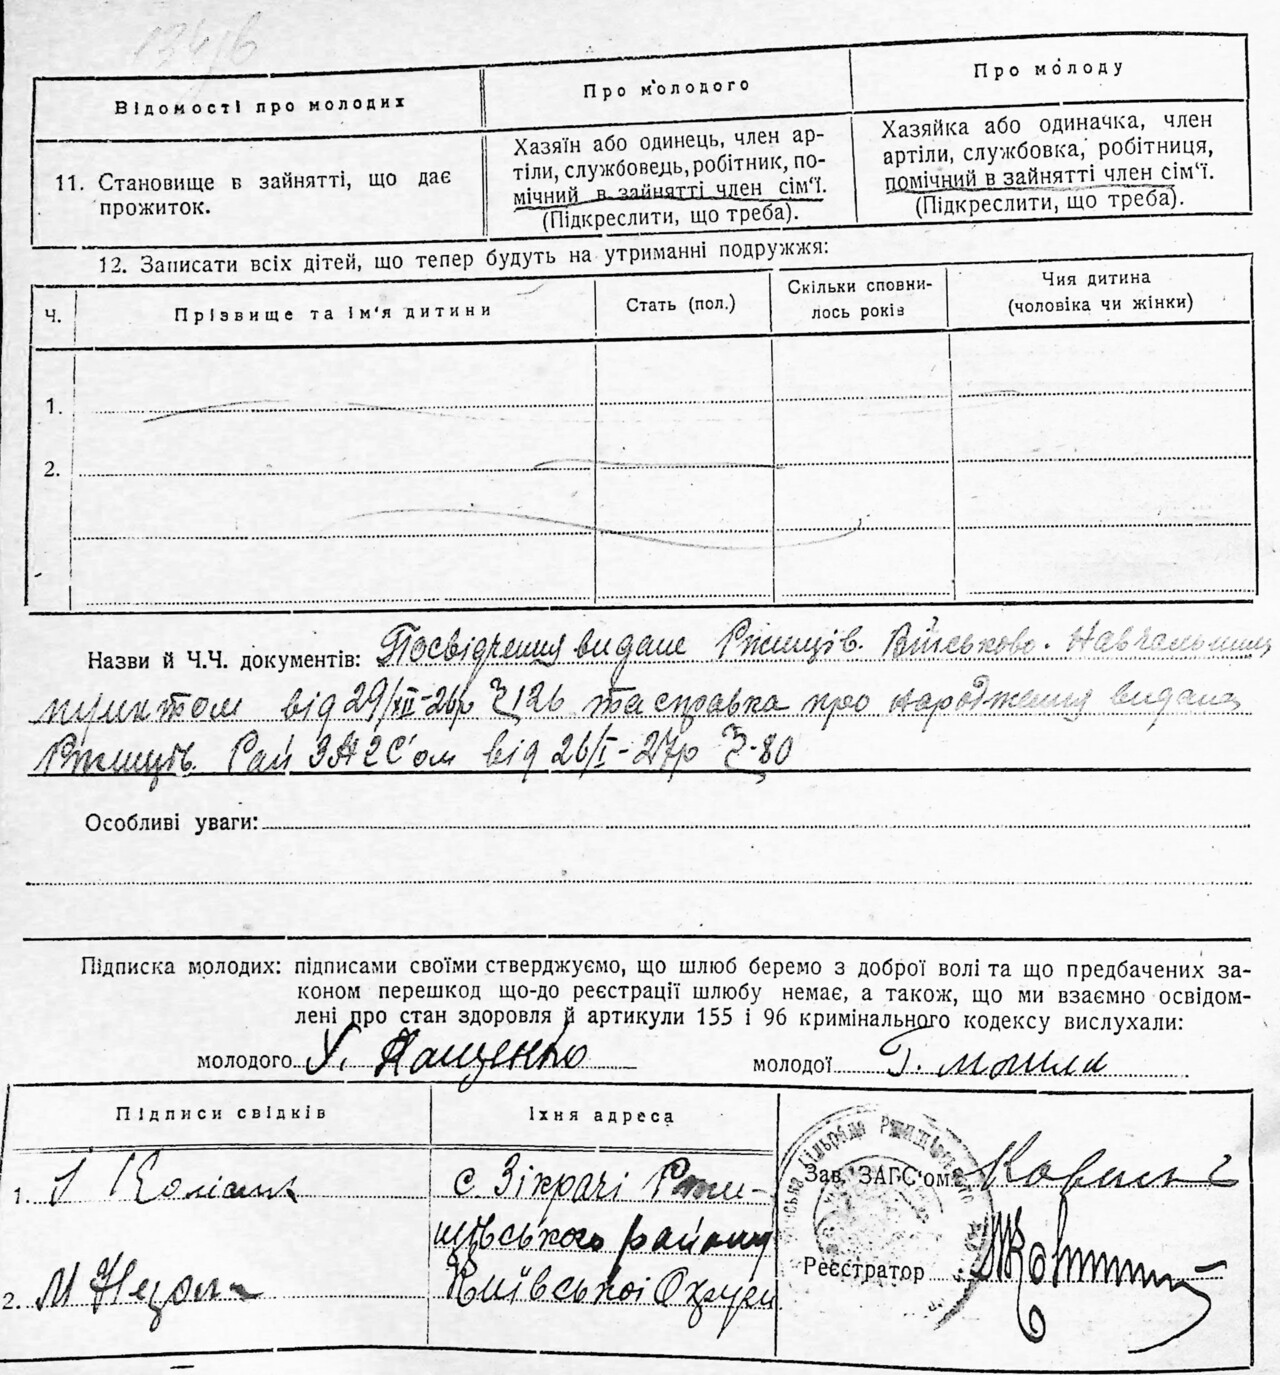 134/6
Відомості про молодих
Про молодого
Про молоду
11. Становище в зайнятті, що дає
прожиток.
Хазяїн або одинець, член ар-
тіли, службовець, робітник, по-
мічний в зайнятті член сім'ї.
(Підкреслити, що треба).
Хазяйка або одиначка, член
артіли, службовка, робітниця,
помічний в зайнятті член сім'ї.
(Підкреслити, що треба).
12. Записати всіх дітей, що тепер будуть на утриманні подружжя:
Ч.
Прізвище та ім'я дитини
Стать (пол.)
Скільки сповни-
лось років
Чия дитина
(чоловіка чи жінки)
1.
2.
Назви й Ч.Ч. документів: Посвідчення видане Ржищів. Військово-Навчальним
пунктом від 29/XII-26р Ч 126 та справка про народження видана
Ржищів. Рай ЗАГС'ом від 26/I-27р Ч-80
Особливі уваги:
Підписка молодих: підписами своїми стверджуємо, що шлюб беремо з доброї волі та що предбачених за-
коном перешкод що-до реєстрації шлюбу немає, а також, що ми взаємно освідом-
лені про стан здоровля й артикули 155 і 96 кримінального кодексу вислухали:
молодого У. Пащенко молодої Г.
Підписи свідків
Їхня адреса
1.
с. Зікрачі Ржи-
щівського району
2. М
Київської Округи
Зав. ЗАГС'ом
Реєстратор